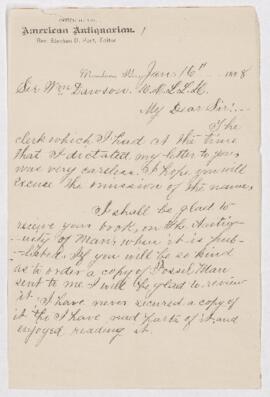 OFFICE OF THE
American Antiquarian.
Rev. Stephen D. Peet, Editor
Mendon Ill, Jan 16" 1888
Sir Wm Dawson.
My Dear Sir:—
The
clerk which I had at the time
that I dictated my letter to you
was very careless. I hope you will
excuse the omission of the name.
I shall be glad to
receive your book, on the Antiq-
uity of Man, when it is pub-
lished. If you will be so kind
as to order a copy of Fossil Man
sent to me I will be glad to review
it. I have never secured a copy of
it tho I have read parts of it and
enjoyed reading it.